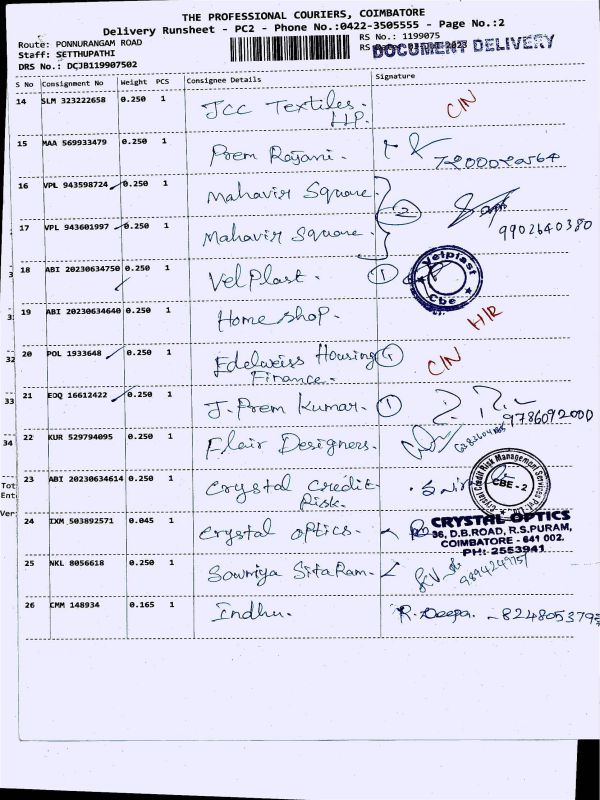 THE PROFESSIONAL COURIERS, COIMBATORE
Delivery Runsheet - PC2 - Phone No.:0422-3505555 - Page No.:2
Route: PONNURANGAM ROAD
RS No.: 1199075
Staff: SETTHUPATHI
DOCUMENT DELIVERY
DRS No.: DCJB119907502
S No Consignment No Weight PCS Consignee Details Signature
14 SLM 323222658 0.250 1 JCC Textiles. LLP. C/N
15 MAA 569933479 0.250 1 Prem Rajani.
16 VPL 943598724 0.250 1 Mahavir Square 2
17 VPL 943601997 0.250 1 Mahavir Square. 9902640380
18 ABI 20230634750 0.250 1 Velplast. 1 Velplast Cbe
19 ABI 20230634640 0.250 1 Home shop. H/R
20 POL 1933648 0.250 1 Edelweiss Housing Finance. 1 C/N
21 EDQ 16612422 0.250 1 J. Prem Kumar. 1 9786092000
22 KUR 529794095 0.250 1 Flair Designers.
23 ABI 20230634614 0.250 1 Crystal Credit Risk. Crystal Credit Risk Management Services Pvt. Ltd. CBE - 2
24 IXM 503892571 0.045 1 Crystal optics.
CRYSTAL OPTICS
36, D.B.ROAD, R.S.PURAM,
COIMBATORE - 641 002.
PH: 2553941
25 NKL 8056618 0.250 1 Sowmya SitaRam.
26 CMM 148934 0.165 1 Indhu. R. Deepa.
31
32
33
34
Tot
Ent
Ver